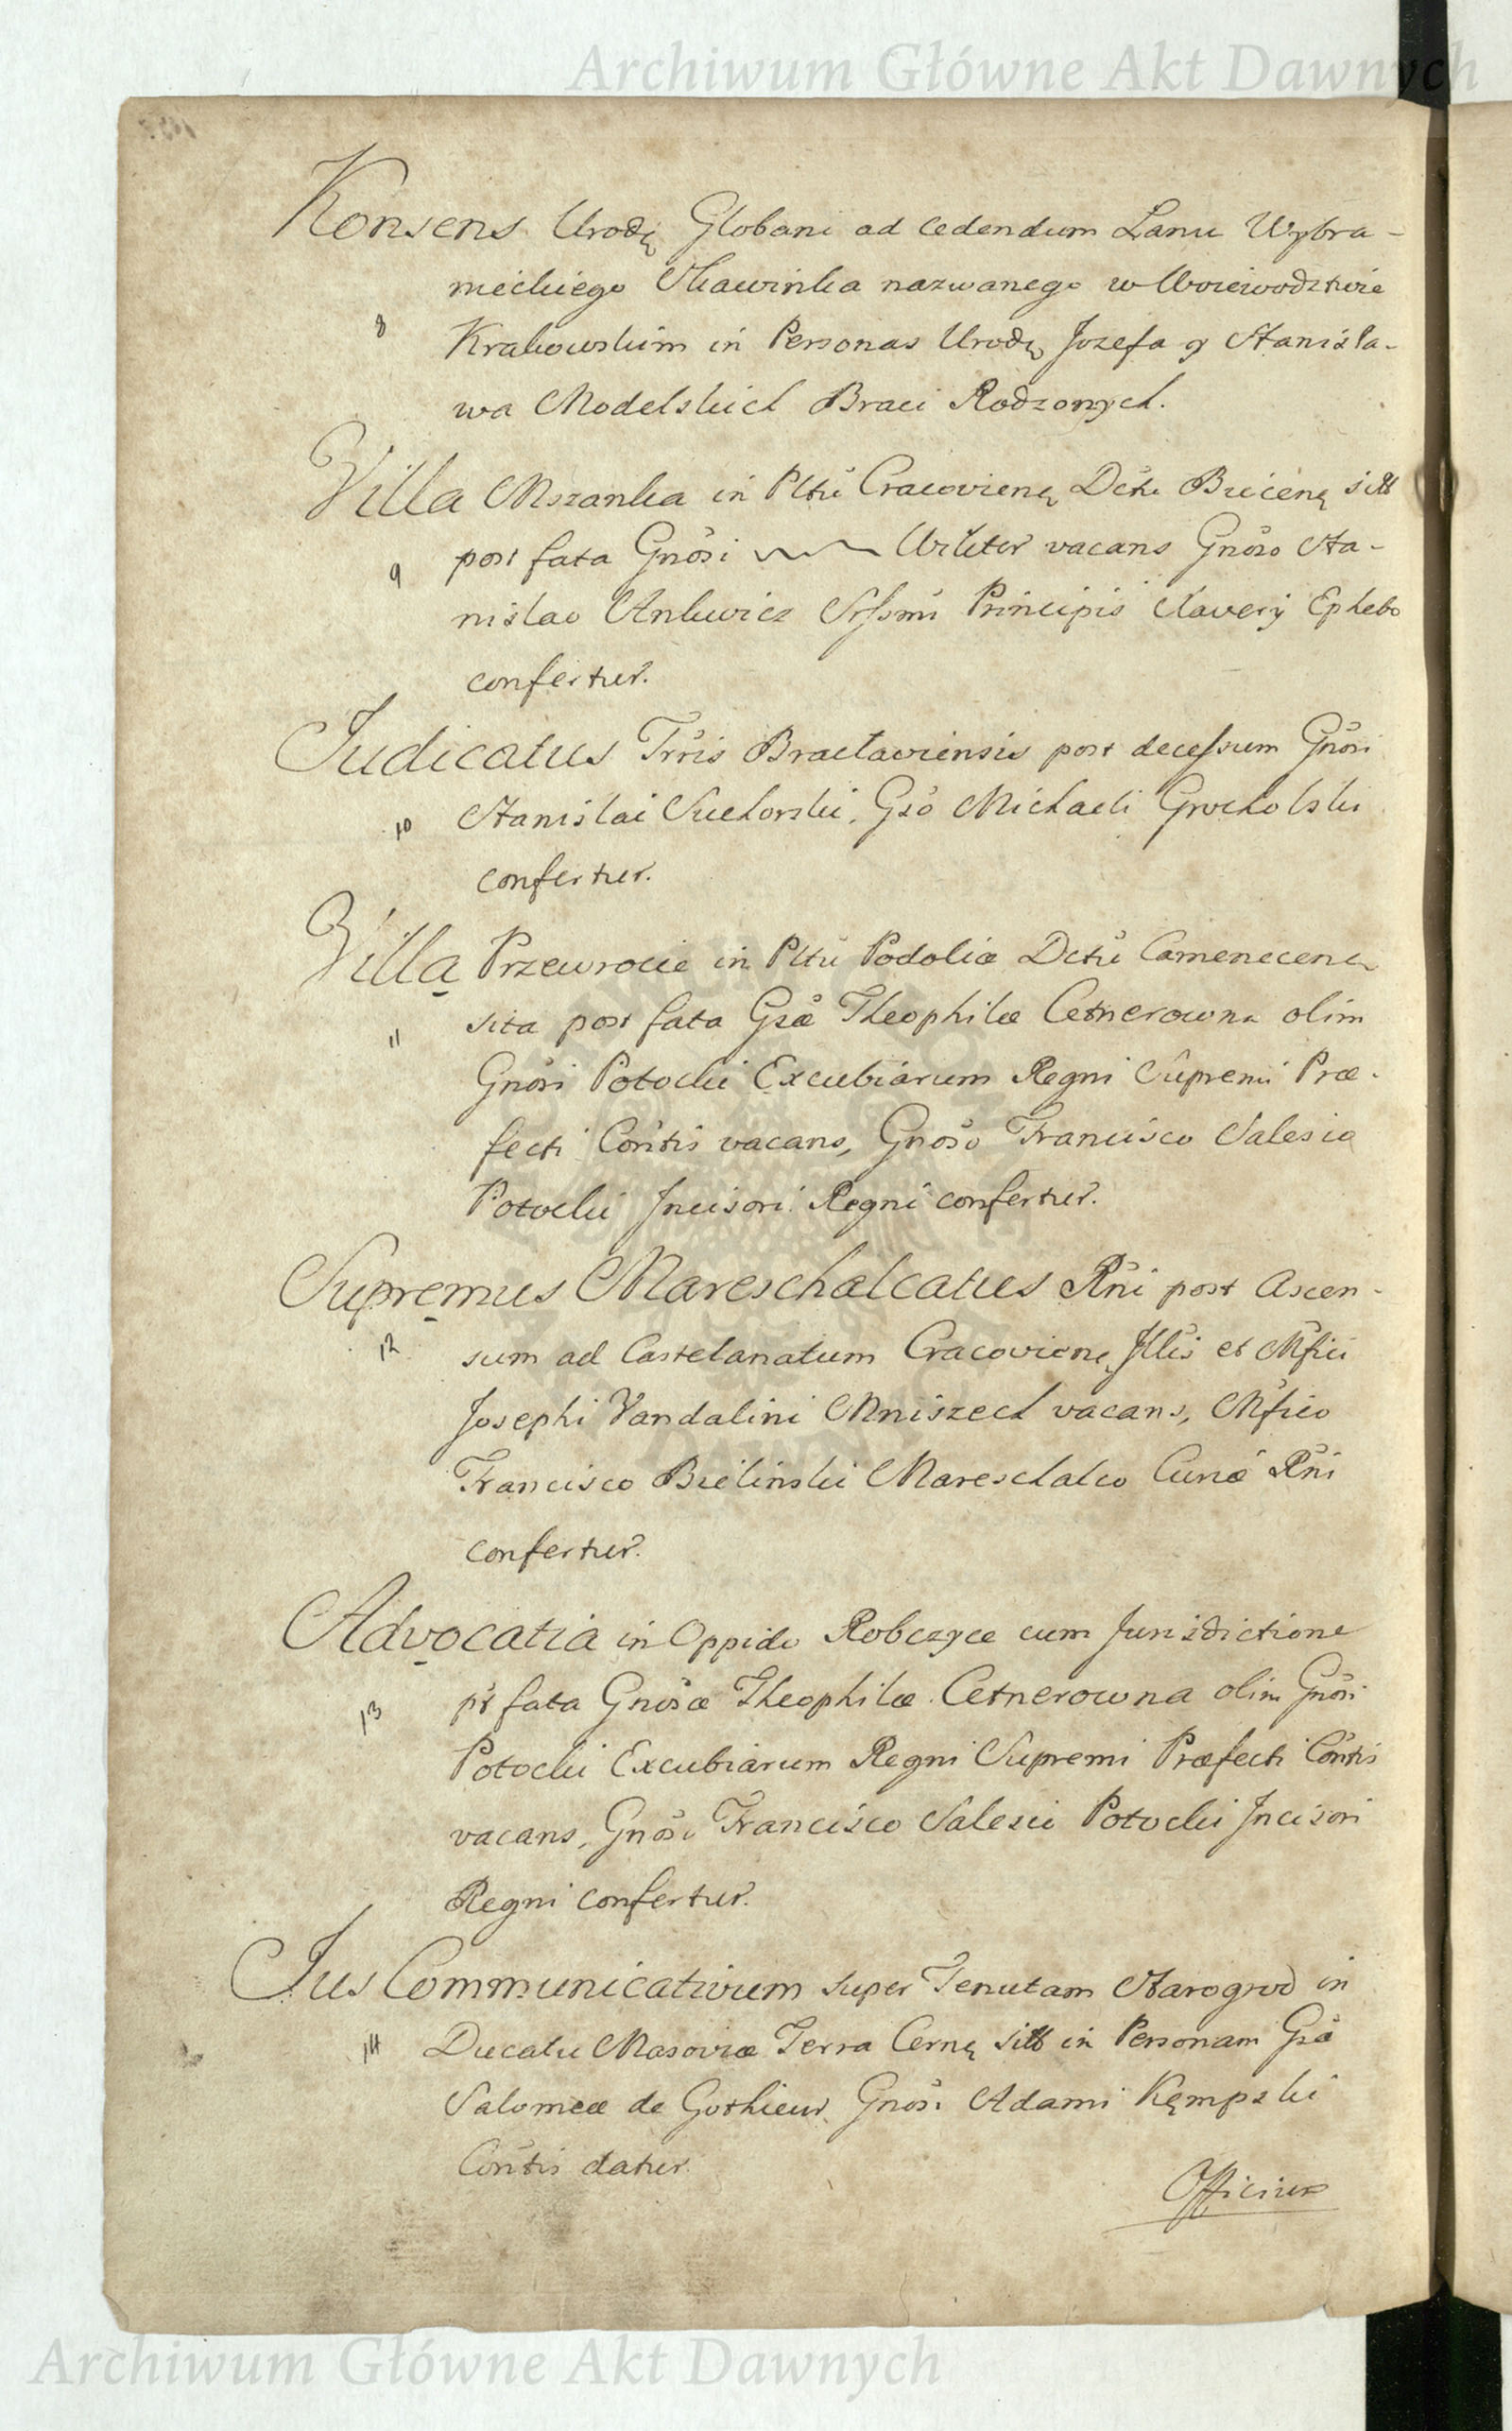 Archiwum Główne Akt Dawnych
Konsens Urodz Globani ad cedendum Łanu Wybra-
nieckiego Skawinka nazwanego w Woiewodztwie
8 Krakowskim in Personas Urodz Jozefa y Stanisła-
wa Modelskich Braci Rodzonych.
Villa Mszanka in Pltu Cracovien Dctu Biecen sitt
9 post fata Gnosi Wiktor vacans Gnoso Sta-
nislao Ankwicz Srssmi Principis Xaverij Ephebo
confertur.
Judicatus Trris Bracłaviensis post decessum Gnosi
10 Stanislai Suchorski, Gso Michaeli Grocholski
confertur.
Villa Przewrocie in Pltu Podoliæ Dctu Camenecen
11 sita post fata Gsæ Theophilæ Cetnerowna olim
Gnosi Potocki Excubiarum Regni Supremi Præ-
fecti Contis vacans, Gnoso Francisco Salesio
Potocki Incisori Regni confertur.
Supremus Mareschalcatus Rni post Ascen-
12 sum ad Castelanatum Cracovien Illis et Mfici
Josephi Vandalini Mniszech vacans, Mfico
Francisco Bielinski Mareschalco Curiæ Rni
confertur.
Advocatia in Oppido Robczyce cum Jurisdictione
13 pt fata Gnosæ Theophilæ Cetnerowna olim Gnosi
Potocki Excubiarum Regni Supremi Præfecti Contis
vacans, Gnoso Francisco Salesio Potocki Incisori
Regni confertur.
Jus Communicativum super Tenutam Starogrod in
14 Ducatu Masoviæ Terra Cernen sitt in Personam Gsæ
Salomeæ de Gothieur Gnosi Adami Kempski
Contis datur.
Officium
Archiwum Główne Akt Dawnych